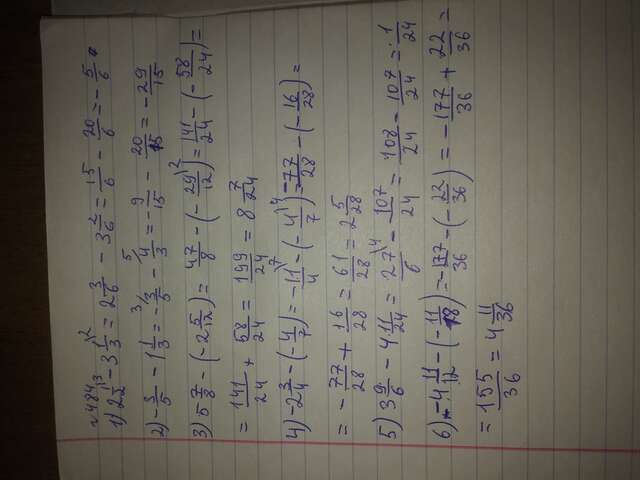 №484
1) 2 1/2 \3 - 3 1/3 \2 = 2 3/6 - 3 2/6 = 15/6 - 20/6 = - 5/6
2) - 3/5 - 1 1/3 = - 3/ 3/5 - 5/ 4/3 = - 9/15 - 20/15 = - 29/15
3) 5 7/8 - (- 2 5/12) = 47/8 - (- 29/12 \2) = 141/24 - (- 58/24) =
= 141/24 + 58/24 = 199/24 = 8 7/24
4) - 2 3/4 - (- 4/7) = - 11/4 \7 - (- 4/7 \4) = - 77/28 - (- 16/28) =
= - 77/28 + 16/28 = 61/28 = 2 5/28
5) 3 9/6 - 4 11/24 = 27/6 \4 - 107/24 = 108/24 - 107/24 = 1/24
6) - 4 11/12 - (- 11/18) = - 177/36 - (- 22/36) = - 177/36 + 22/36 =
= 155/36 = 4 11/36